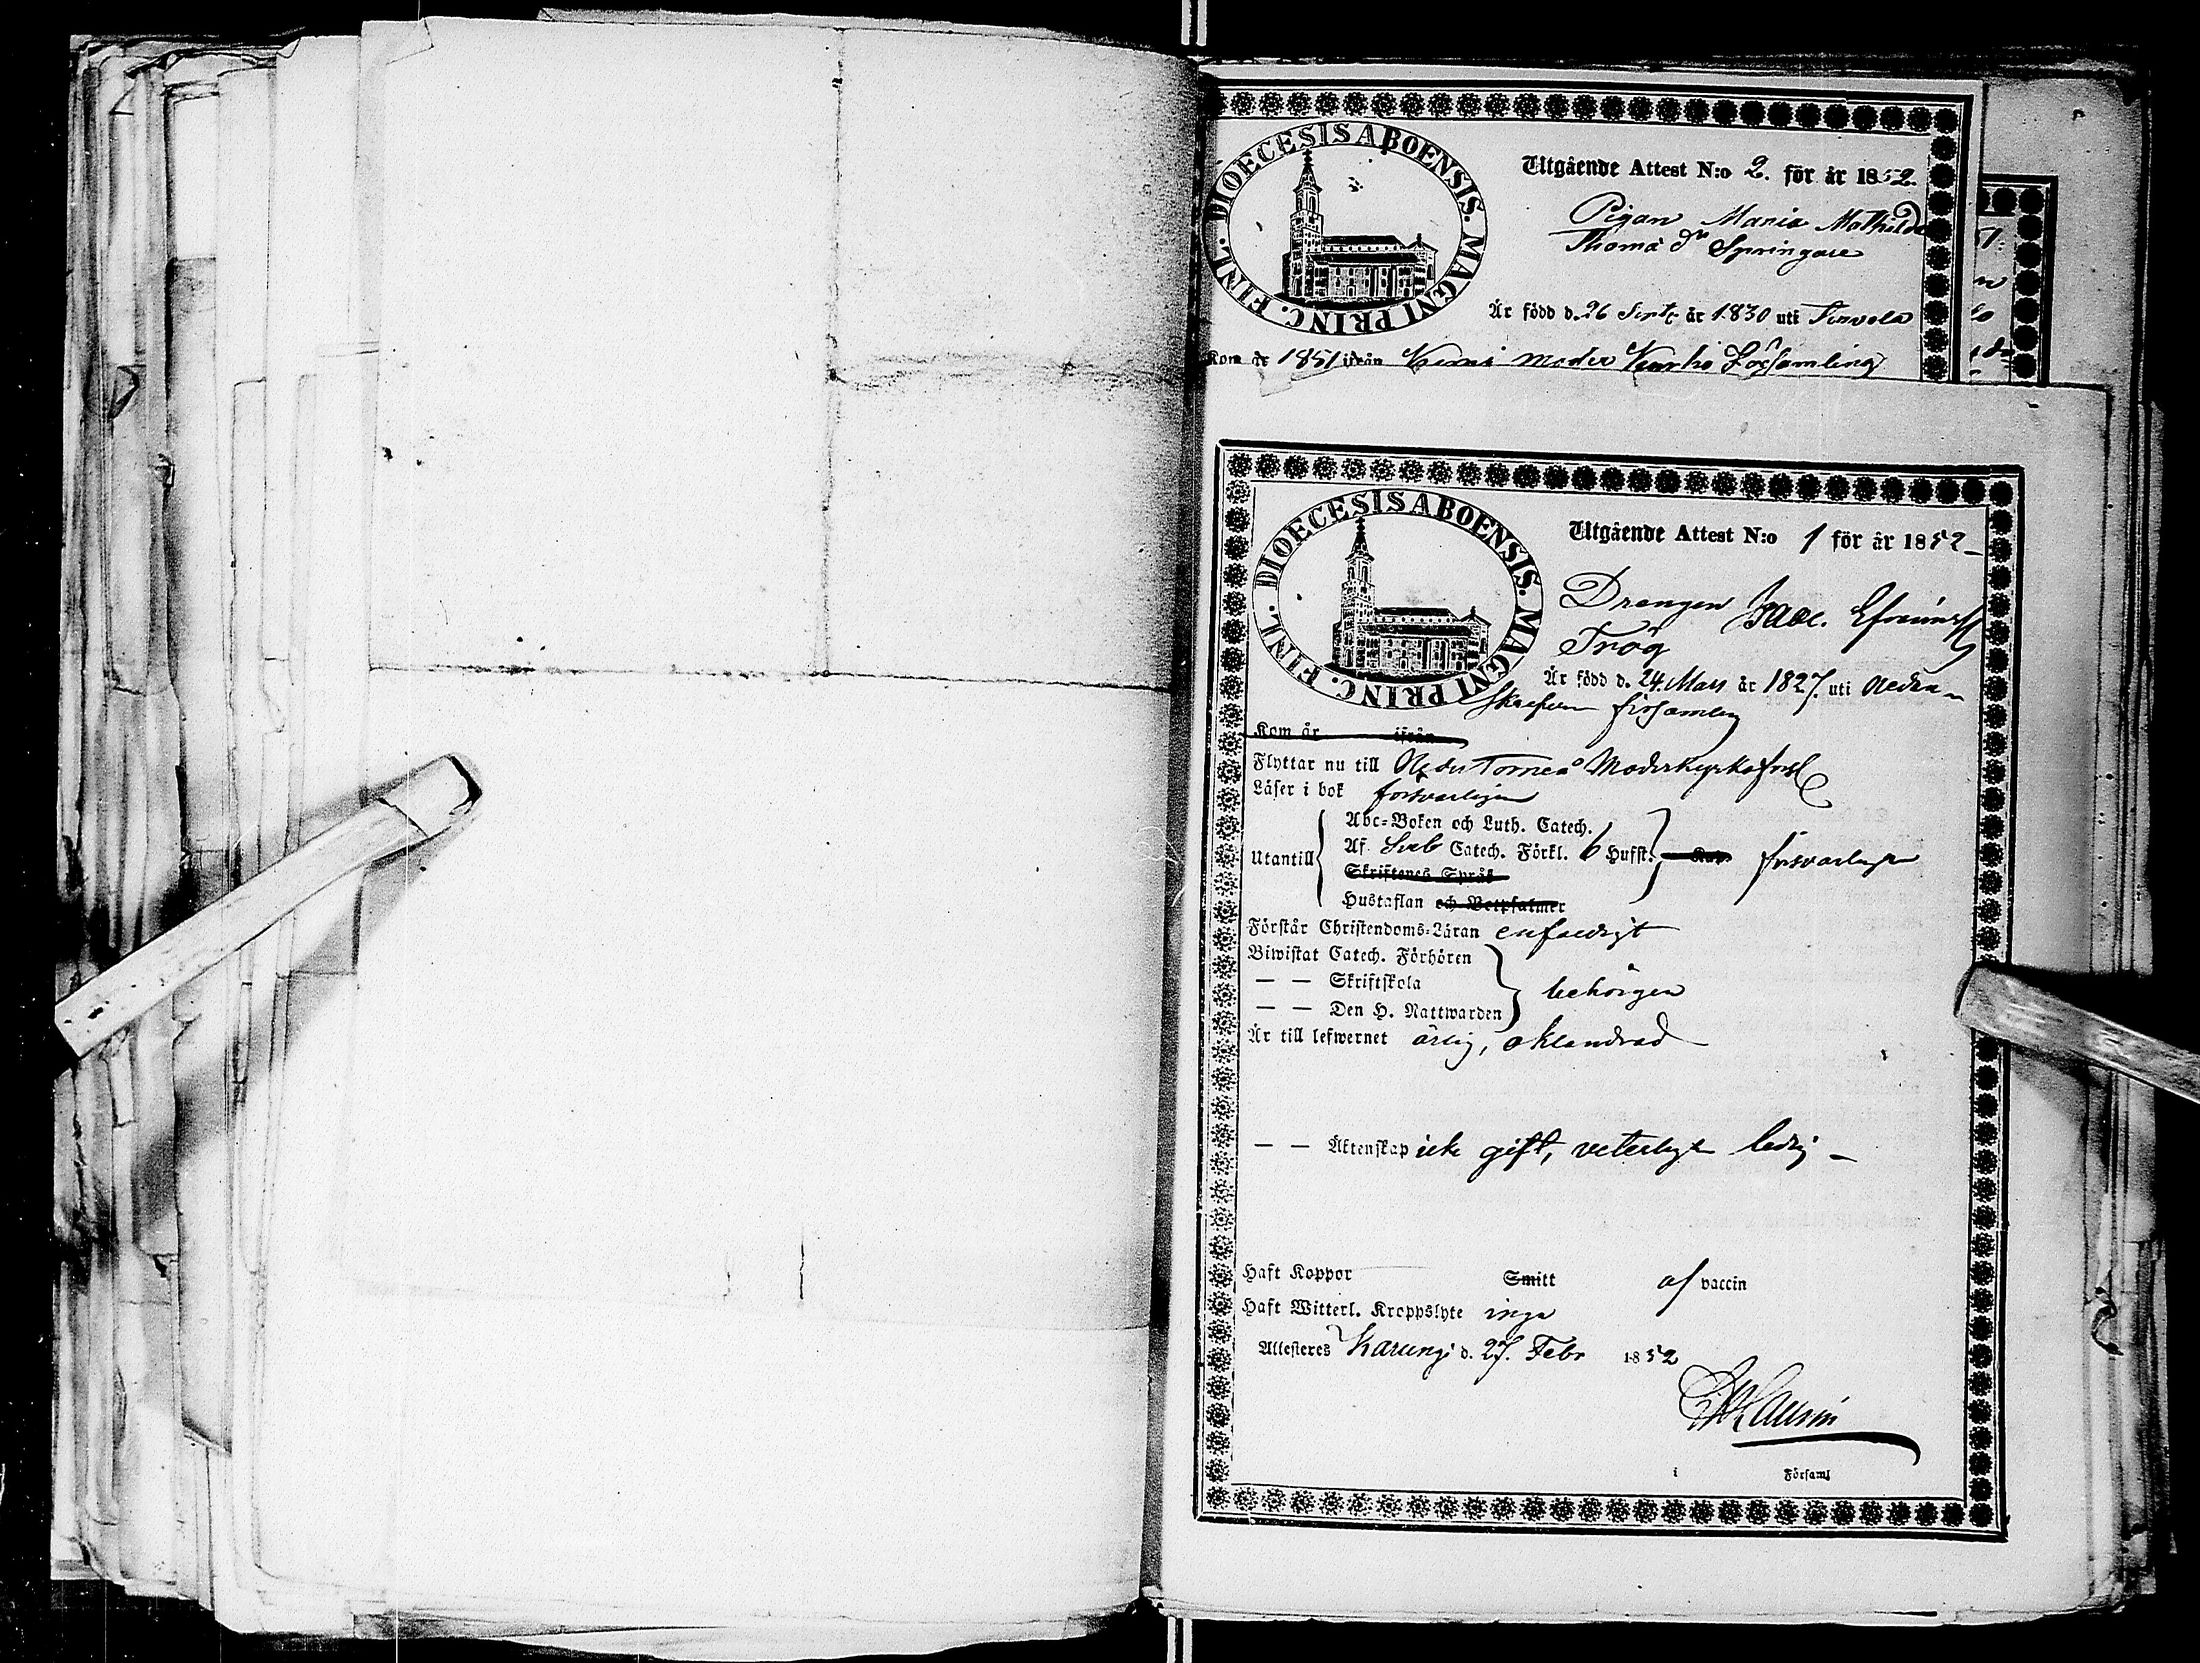 DIOECESIS ABOENSIS. MAGNI PRINC. FINL.
Utgående Attest N:o 2. för år 1852.
Pigan Maria Mathilda
Thoma dr Springare
Är född d. 26 Sept. år 1830 uti Tervola
Kom år 1851 ifrån Kemi moder Kyrko Församling
DIOECESIS ABOENSIS. MAGNI PRINC. FINL.
Utgående Attest N:o 1 för år 1852
Drengen Isac. Efraimss
Trög
Är född d. 24. Mars år 1827. uti Neder
församling
Kom år ifrån
Flyttar nu till Neder Torneå Moderkyrko förs
Läser i bok försvarligen
Utantill
Abc-Boken och Luth. Catech.
Af Sveb Catech. Förkl. 6 Hufst. Kap. försvarligen
Skriftenes Språk
Hustaflan och Botpsalmer
Förstår Christendoms-Läran enfaldigt
Biwistat Catech. Förhören
— — Skriftskola behörigen
— — Den H. Nattwarden
Är till lefwernet ärlig, oklandrad
— — Äktenskap icke gift, veterligen ledig
Haft Koppor Smitt af vaccin
Haft Witterl. Kroppslyte inga
Attesteres Karungi d. 27. Febr 1852
i Församl